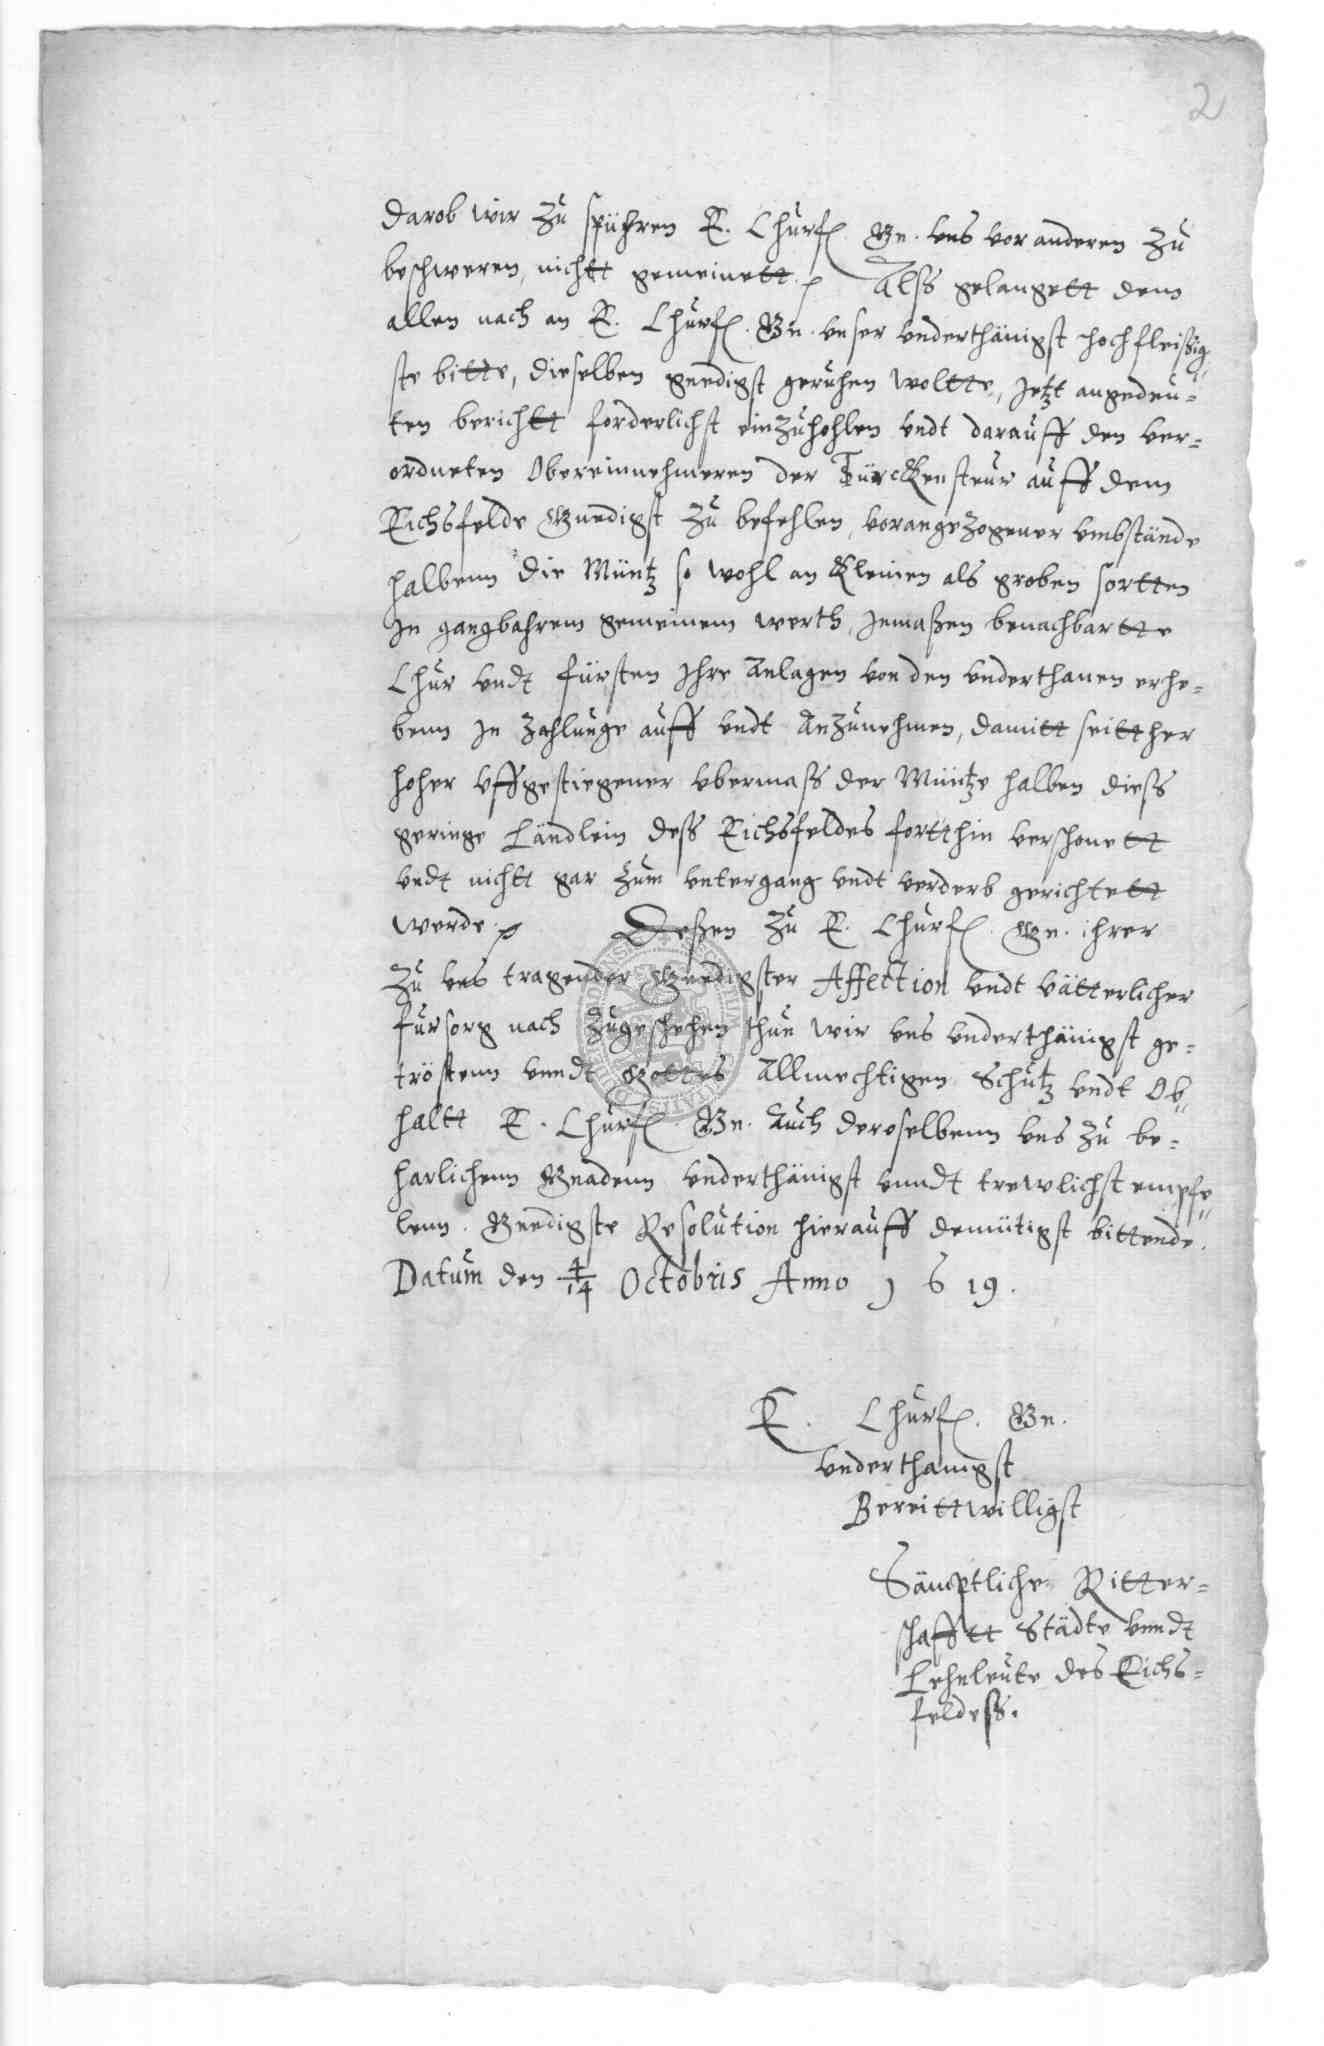 2
darob wir zu spühren E. Churf. Gn. vns vor anderen zu
beschweren, nichtt gemeinett. Alss gelangett dem
allen nach an E. Churf. Gn. vnser vnderthänigst hochfleißig-
ste bitte, dieselben gnedigst geruhen woltte, jetzt angedeu-
ten berichtt forderlichst einzuhohlen vndt darauff den ver-
ordneten Obereinnehmeren der Türckensteur auff dem
Eichsfelde Gnedigst zu befehlen, vorangezogener vmbstände
halbenn die Müntz so wohl an Kleinen als groben sortten
Jn gangbahrem gemeinem werth, jnmaßen benachbartte
Chur vndt fürsten jhre Anlagen von den vnderthanen erhe-
benn jn zahlunge auff vndt Anzunehmen, damitt seitther
hoher vffgestiegener vbermass der Müntze halben diess
geringe Ländlein dess Eichsfeldes fortthin verschonett
vndt nichtt gar zum vntergang vndt verderb gerichtett
werde. Deßen zu E. Churf. Gn. ihrer
zu vns tragender Gnedigster Affection vndt vätterlicher
fursorg nach zugeschehen thun wir vns vnderthänigst ge-
tröstenn vnndt Gottes Allmechtigen Schutz vndt Ob-
haltt E. Churf. Gn. Auch deroselbenn vns zu be-
harlichenn Gnadenn vnderthänigst vnndt trewlichst empfe-
lenn. Gnedigste Resolution hierauff demütigst bittende.
Datum den 4/14 Octobris Anno 1619.
E. Churf. Gn.
vnderthanigst
Bereittwilligst
Sämptliche Ritter-
schafftt Städte vnndt
Lehnleute des Eichs-
feldess.